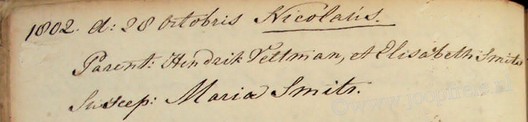 1802. d: 28 Octobris Nicolaus.
Parent: Hendrik Tettman, et Elisabeth Smits
Suscep: Maria Smits.